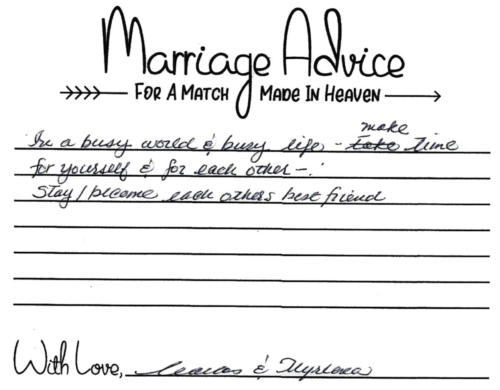 Marriage Advice
FOR A MATCH MADE IN HEAVEN
make
In a busy world & busy life - take time
for yourself & for each other - .
Stay / become each others best friend
With Love, &